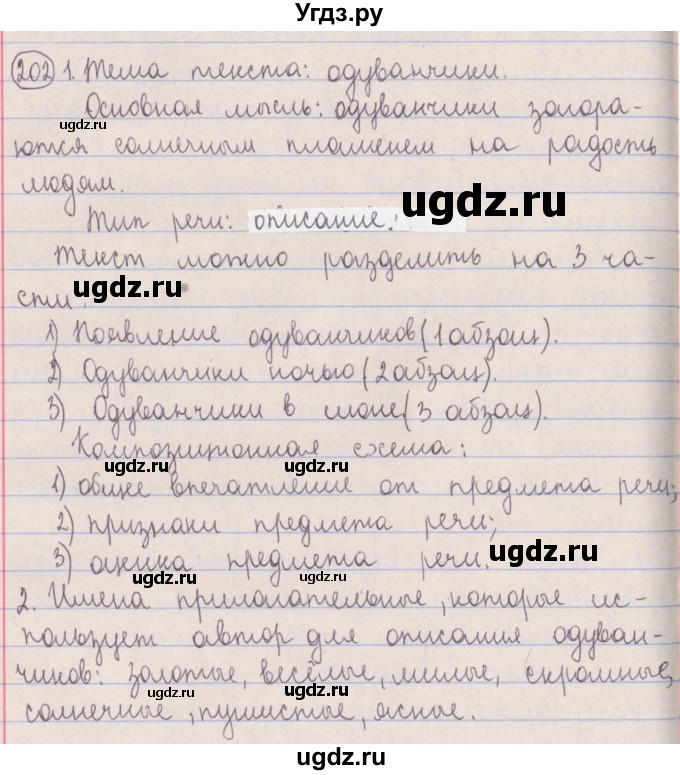 Угдз.ру
202 1. Тема текста: одуванчики.
Основная мысль: одуванчики загора-
ются солнечным пламенем на радость
людям.
Тип речи: описание.
Текст можно разделить на 3 ча-
сти:
1) Появление одуванчиков (1 абзац).
2) Одуванчики ночью (2 абзац).
3) Одуванчики в июне (3 абзац).
Композиционная схема:
1) общее впечатление от предмета речи;
2) признаки предмета речи;
3) оценка предмета речи.
2. Имена прилагательные, которые ис-
пользует автор для описания одуван-
чиков: золотые, весёлые, милые, скромные,
солнечные, пушистые, ясные.
ugdz.ru
ugdz.ru
ugdz.ru
ugdz.ru
ugdz.ru
ugdz.ru
ugdz.ru
ugdz.ru
ugdz.ru
ugdz.ru
ugdz.ru
ugdz.ru